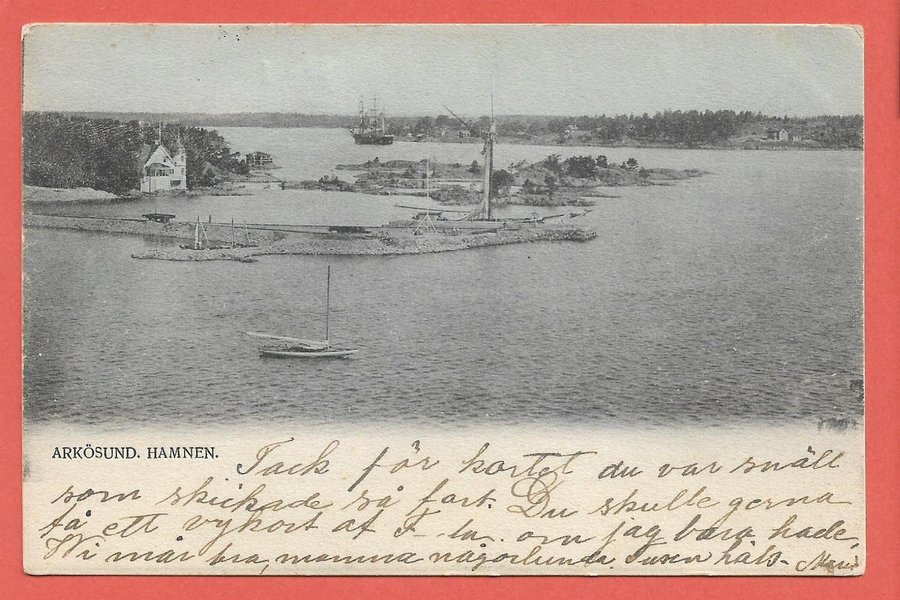 ARKÖSUND. HAMNEN.
Tack för kortet du var snäll
som skickade så fort. Du skulle gerna
få ett vykort af F-la.. om jag bara hade,
Wi mår bra, mamma någorlunda. Tusen häls-